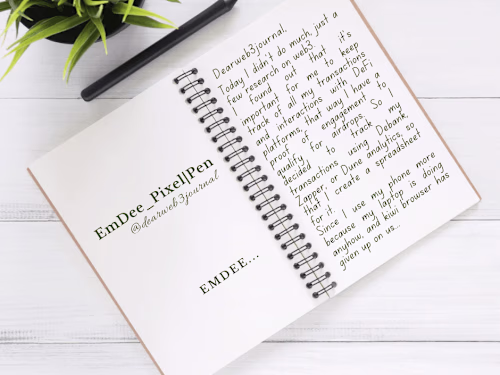 EmDee_Pixel||Pen
@dearweb3journal
EMDEE...
Dearweb3journal,
Today I didn't do much, just a
few research on web3.
I found out that it's
important for me to keep
track of all my transactions
and interactions with DeFi
platforms, that way I have a
proof of engagement to
qualify for airdrops. So I
decided to track my
transactions using Debank,
Zapper, or Dune analytics, so
that I create a spreadsheet
for it.
Since I use my phone more
because my laptop is doing
anyhow, and kiwi browser has
given up on us...